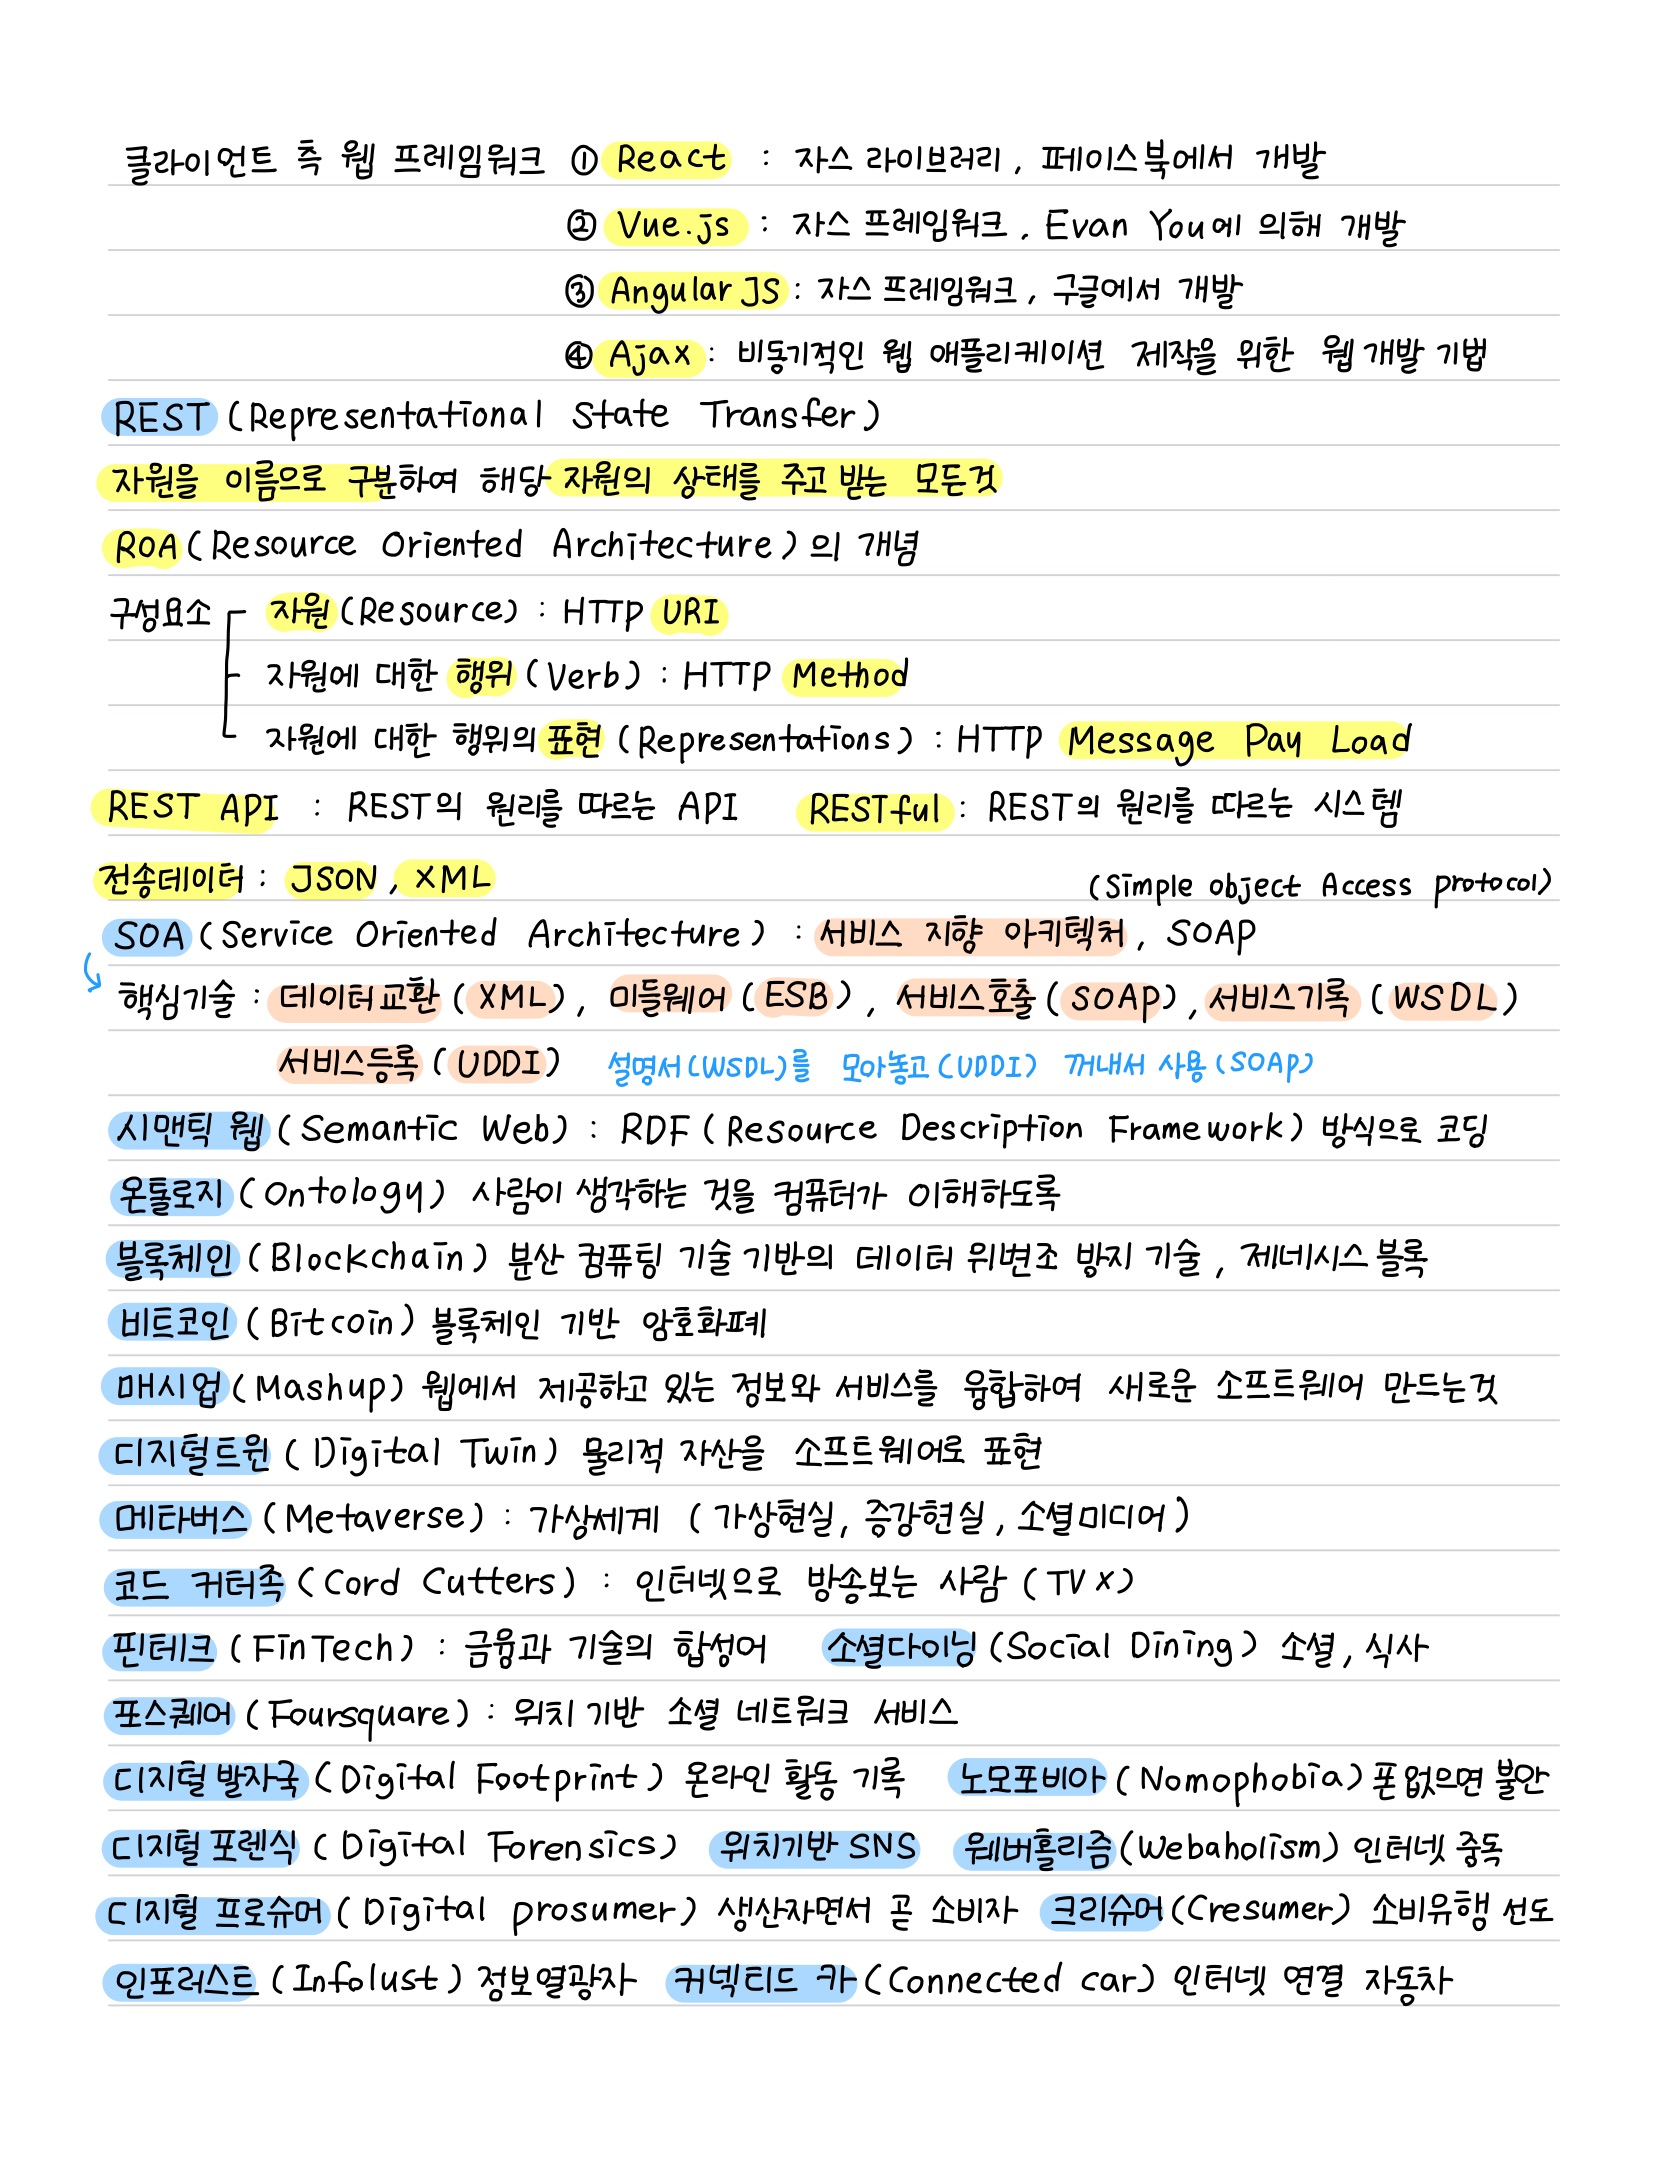 클라이언트 측 웹 프레임워크 ① React : 자스 라이브러리, 페이스북에서 개발
② Vue.js : 자스 프레임워크, Evan You에 의해 개발
③ Angular JS : 자스 프레임워크, 구글에서 개발
④ Ajax : 비동기적인 웹 애플리케이션 제작을 위한 웹 개발 기법
REST (Representational State Transfer)
자원을 이름으로 구분하여 해당 자원의 상태를 주고 받는 모든것
ROA (Resource Oriented Architecture)의 개념
구성요소 자원(Resource) : HTTP URI
자원에 대한 행위 (Verb) : HTTP Method
자원에 대한 행위의 표현 (Representations) : HTTP Message Pay Load
REST API : REST의 원리를 따르는 API RESTful : REST의 원리를 따르는 시스템
전송데이터 : JSON, XML (Simple object Access protocol)
SOA (Service Oriented Architecture) : 서비스 지향 아키텍처, SOAP
핵심기술 : 데이터교환 (XML), 미들웨어 (ESB), 서비스호출 (SOAP), 서비스기록 (WSDL)
서비스등록 (UDDI) 설명서(WSDL)를 모아놓고 (UDDI) 꺼내서 사용 (SOAP)
시맨틱 웹 (Semantic Web) : RDF (Resource Description Framework) 방식으로 코딩
온톨로지 (Ontology) 사람이 생각하는 것을 컴퓨터가 이해하도록
블록체인 (Blockchain) 분산 컴퓨팅 기술 기반의 데이터 위변조 방지 기술, 제네시스 블록
비트코인 (Bitcoin) 블록체인 기반 암호화폐
매시업 (Mashup) 웹에서 제공하고 있는 정보와 서비스를 융합하여 새로운 소프트웨어 만드는것
디지털트윈 (Digital Twin) 물리적 자산을 소프트웨어로 표현
메타버스 (Metaverse) : 가상세계 (가상현실, 증강현실, 소셜미디어)
코드 커터족 (Cord Cutters) : 인터넷으로 방송보는 사람 (TV x)
핀테크 (FinTech) : 금융과 기술의 합성어 소셜다이닝 (Social Dining) 소셜, 식사
포스퀘어 (Foursquare) : 위치 기반 소셜 네트워크 서비스
디지털 발자국 (Digital Footprint) 온라인 활동 기록 노모포비아 (Nomophobia) 폰 없으면 불안
디지털 포렌식 (Digital Forensics) 위치기반 SNS 웨버홀리즘 (Webaholism) 인터넷 중독
디지털 프로슈머 (Digital prosumer) 생산자면서 곧 소비자 크리슈머 (Cresumer) 소비유행 선도
인포러스트 (Infolust) 정보열광자 커넥티드 카 (Connected car) 인터넷 연결 자동차